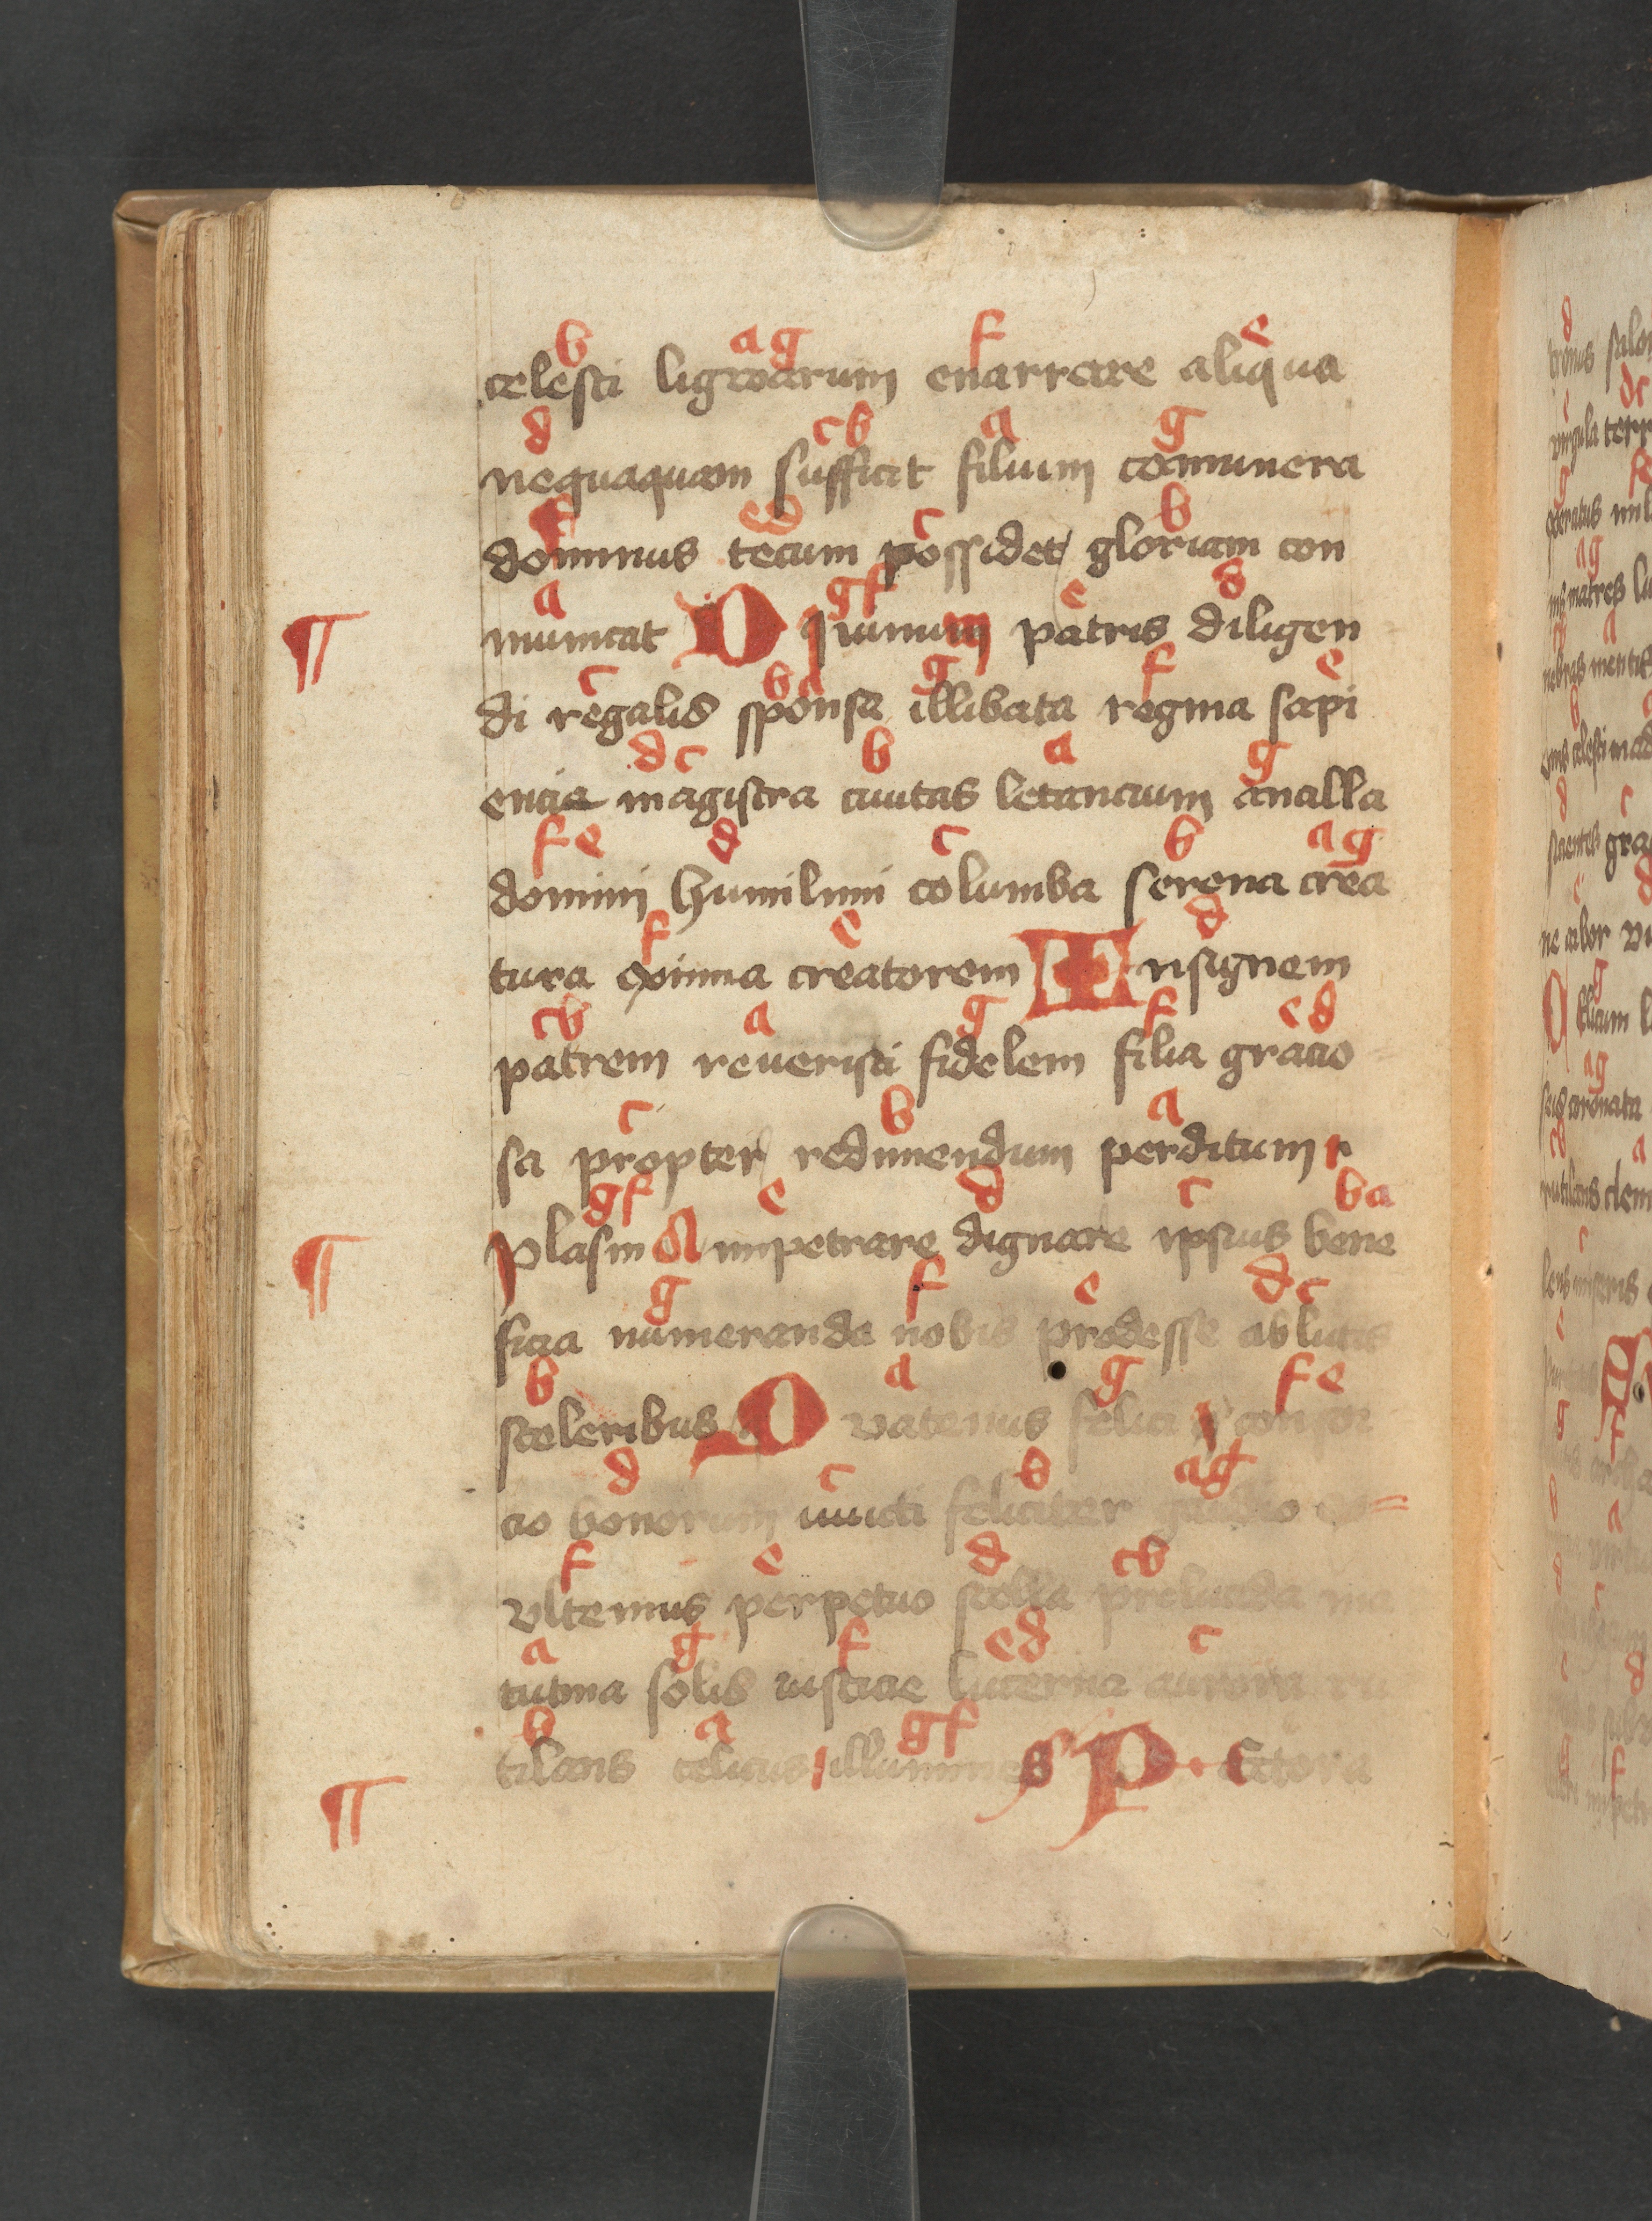 b ag f e
celesti ligwarum enarrare aliqua
d cb a g
nequaquam sufficit filium communera
f ed c b
dominus tecum possidet gloriam con
a gf e d
¶ municat Diuinum patris diligen
c ba g f e
di regalis sponsa illibata regina sapi
dc b a g
encie magistra ciuitas letancium ancilla
fe d c b ag
domini humilimi columba serena crea
f e d
tura eximia creatorem Insignem
cb a g f ed
patrem reueristi fidelem filia gracio
c b a
sa propter redimendum perditum
gf e d c ba
¶ plasma impetrare dignare ipsius bene
g f e dc
ficia numeranda nobis prodesse ablutis
b a g fe
sceleribus Quatenus felici
d c b ag
cio bonorum iuncti feliciter
f e d cb
ultemus perpetuo stella prelucida ma
a g f ed c
tutina solis iusticie lucerna aurora ru
b a gf
tilans celicus illumines
¶